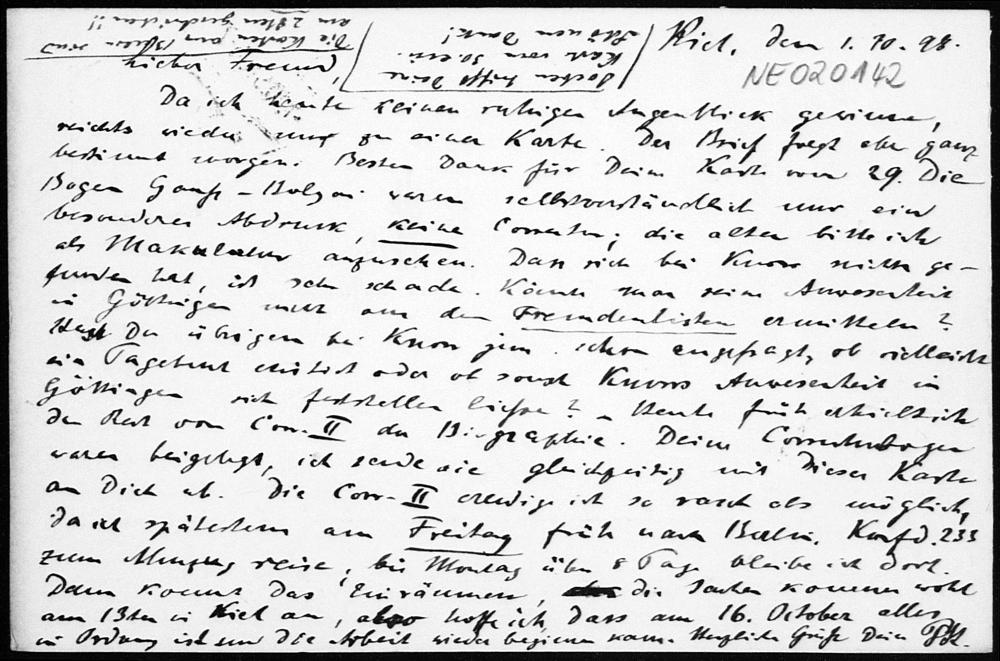 Kiel, den 1. 10. 98.
NE020142
Lieber Freund,
Da ich heute keinen ruhigen Augenblick gewinne,
reichts wieder nur zu einer Karte. Der Brief folgt aber ganz
bestimmt morgen. Besten Dank für Deine Karte vom 29. Die
Bogen Gauss - Bolyai waren selbstverständlich nur ein
besonderer Abdruck, keine Correctur; die alten bitte ich
als Makulatur anzusehen. Dass sich bei Knorr nichts ge-
funden hat, ist sehr schade. Könnte man seine Anwesenheit
in Göttingen nicht aus den Fremdenlisten ermitteln?
Hast Du übrigens bei Knorr jun. schon angefragt, ob vielleicht
ein Tagebuch existirt oder ob sonst Knorrs Anwesenheit in
Göttingen sich feststellen liesse? - Heute früh erhielt ich
den Rest von Corr. II der Biographie. Deine Correcturbogen
waren beigelegt, ich sende sie gleichzeitig mit dieser Karte
an Dich ab. Die Corr. II erledige ich so rasch als möglich,
da ich spätestens am Freitag früh nach Berlin, Kurfd. 233
zum Umzug reise, bis Montag über 8 Tage bleibe ich dort.
Dann kommt das Einräumen, die Sachen kommen wohl
am 13ten in Kiel an, also hoffe ich, dass am 16. October alles
in Ordnung ist und die Arbeit wieder beginnen kann. Herzliche Grüsse Dein
Soeben trifft Deine
Karte vom 30. ein.
Schönen Dank!
Die Karten an sind
am 28ten geschrieben!!